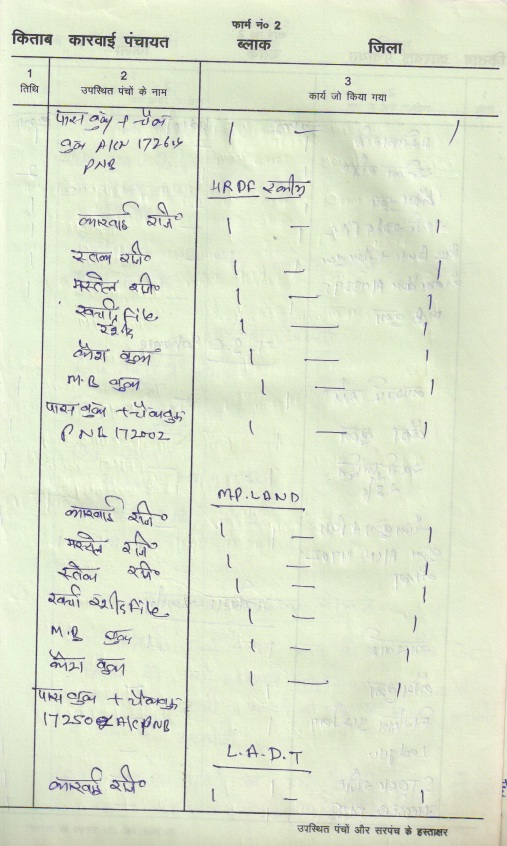 फार्म नं० 2
किताब कारवाई पंचायत ब्लाक जिला
1 2 3
तिथि उपस्थित पंचों के नाम कार्य जो किया गया
पास बुक + चैक 1 — 1
बुक A/C
PNB
HRDF स्कीम
कारवाई रजि० 1 — 1
स्टाक रजि० 1 — 1
मस्टरोल रजि० 1 — 1
खर्चा File 1 — 1
रसीद
कैश बुक 1 — 1
M.B बुक 1 — 1
पास बुक + चैकबुक 1 — 1
PNB 172002
M.P. LAND
कारवाई रजि० 1 — 1
मस्टरोल रजि० 1 — 1
स्टाक रजि० 1 — 1
खर्चा रसीद File 1 — 1
M.B बुक 1 — 1
कैश बुक 1 — 1
पास बुक + चैकबुक
A/C PNB
L.A.D.T
कारवाई रजि० 1 — 1
उपस्थित पंचों और सरपंच के हस्ताक्षर